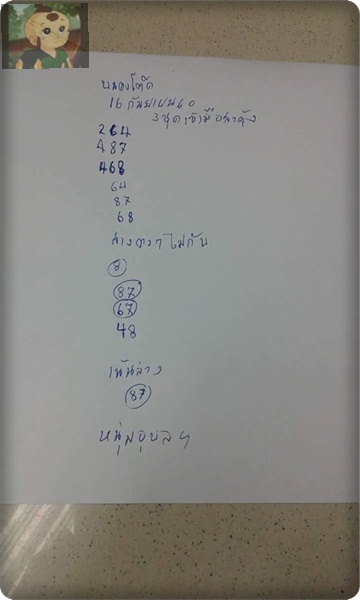 บนตรงโต๊ด
16 กันยายน 60
3 ชุด เจ้ามือสะดุ้ง
264
487
468
64
87
68
ล่างตรงๆ ไม่กลับ
8
87
67
48
เน้นล่าง
87
หนุ่มอุบลฯ